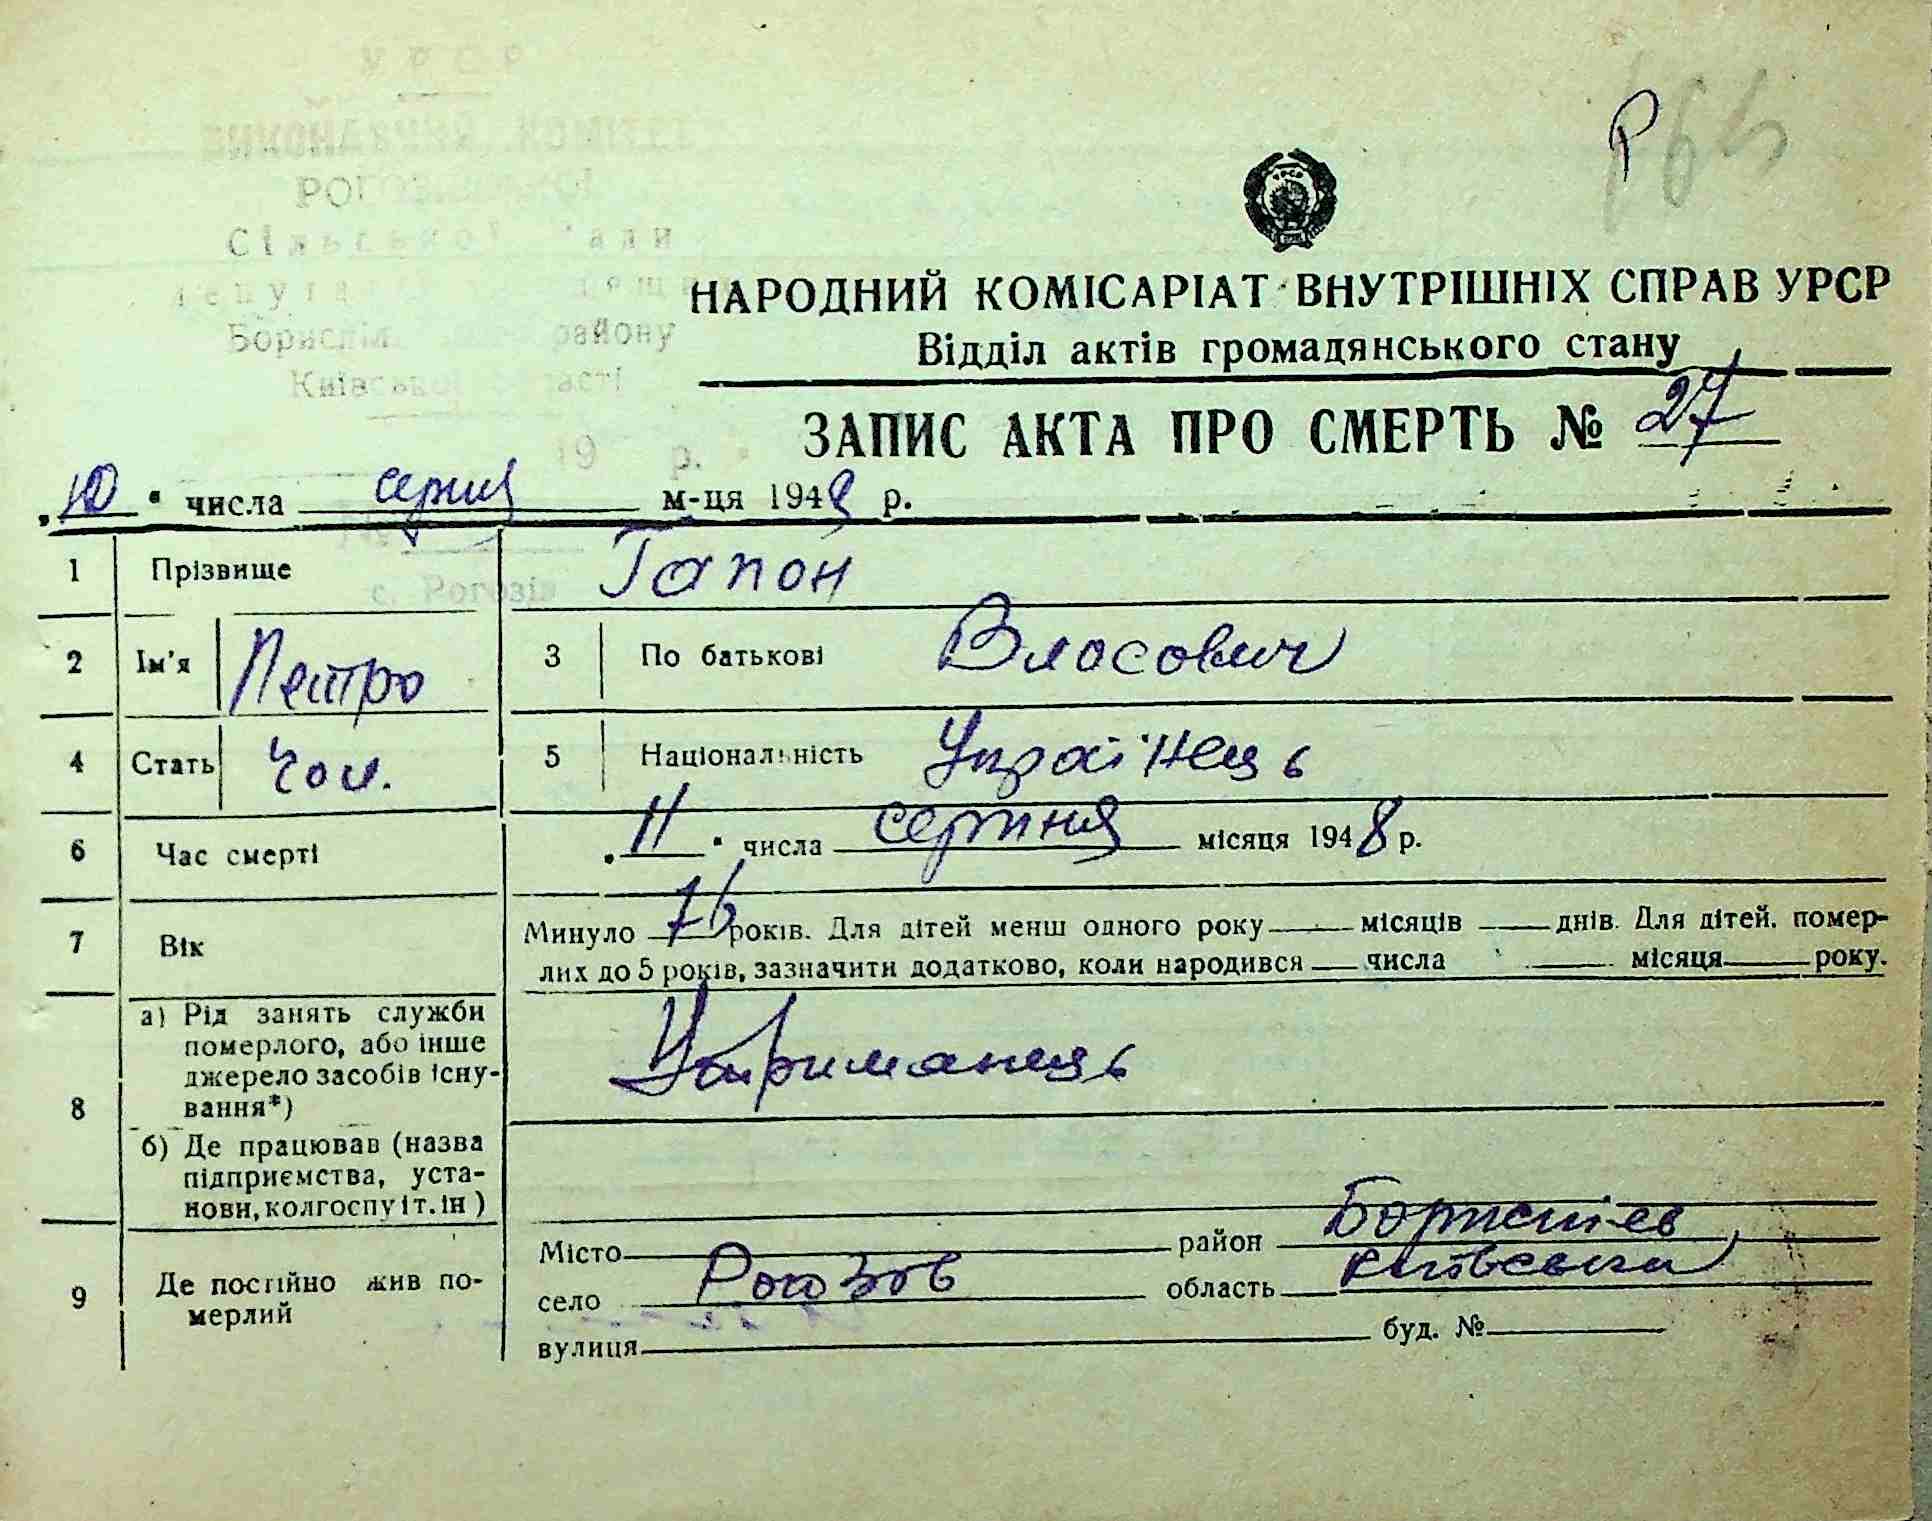 УРСР
ВИКОНАВЧИЙ КОМІТЕТ
Сільської Ради
району
Київської області
19 р.
с. Рогозів
Р
НАРОДНИЙ КОМІСАРІАТ ВНУТРІШНІХ СПРАВ УРСР
Відділ актів громадянського стану
ЗАПИС АКТА ПРО СМЕРТЬ № 27
числа серпня м-ця 1948 р.
1 Прізвище Гапон
2 Ім'я Петро 3 По батькові Власович
4 Стать Чол. 5 Національність Українець
6 Час смерті „11“ числа серпня місяця 1948 р.
7 Вік Минуло 76 років. Для дітей менш одного року — місяців — днів. Для дітей. помер-
лих до 5 років, зазначити додатково, коли народився — числа — місяця — року.
8 а) Рід занять служби
померлого, або інше
джерело засобів існу-
вання*) Утриманець
б) Де працював (назва
підприємства, уста-
нови, колгоспу і т. ін)
9 Де постійно жив по-
мерлий
Місто район
село Рогозов область Київська
вулиця буд. №